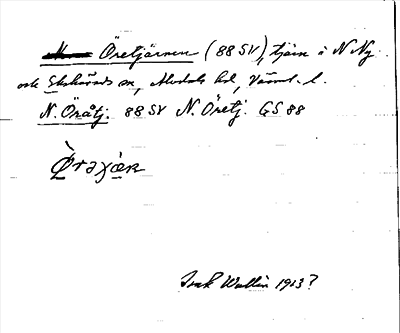 Öretjärnen (88 SV), tjärn i N Ny
och Ekshärads sn, Älvdals hd, Värml. l.
N. Öråtj. 88 SV N. Öretj. GS 88
Isak Wallin 1913?